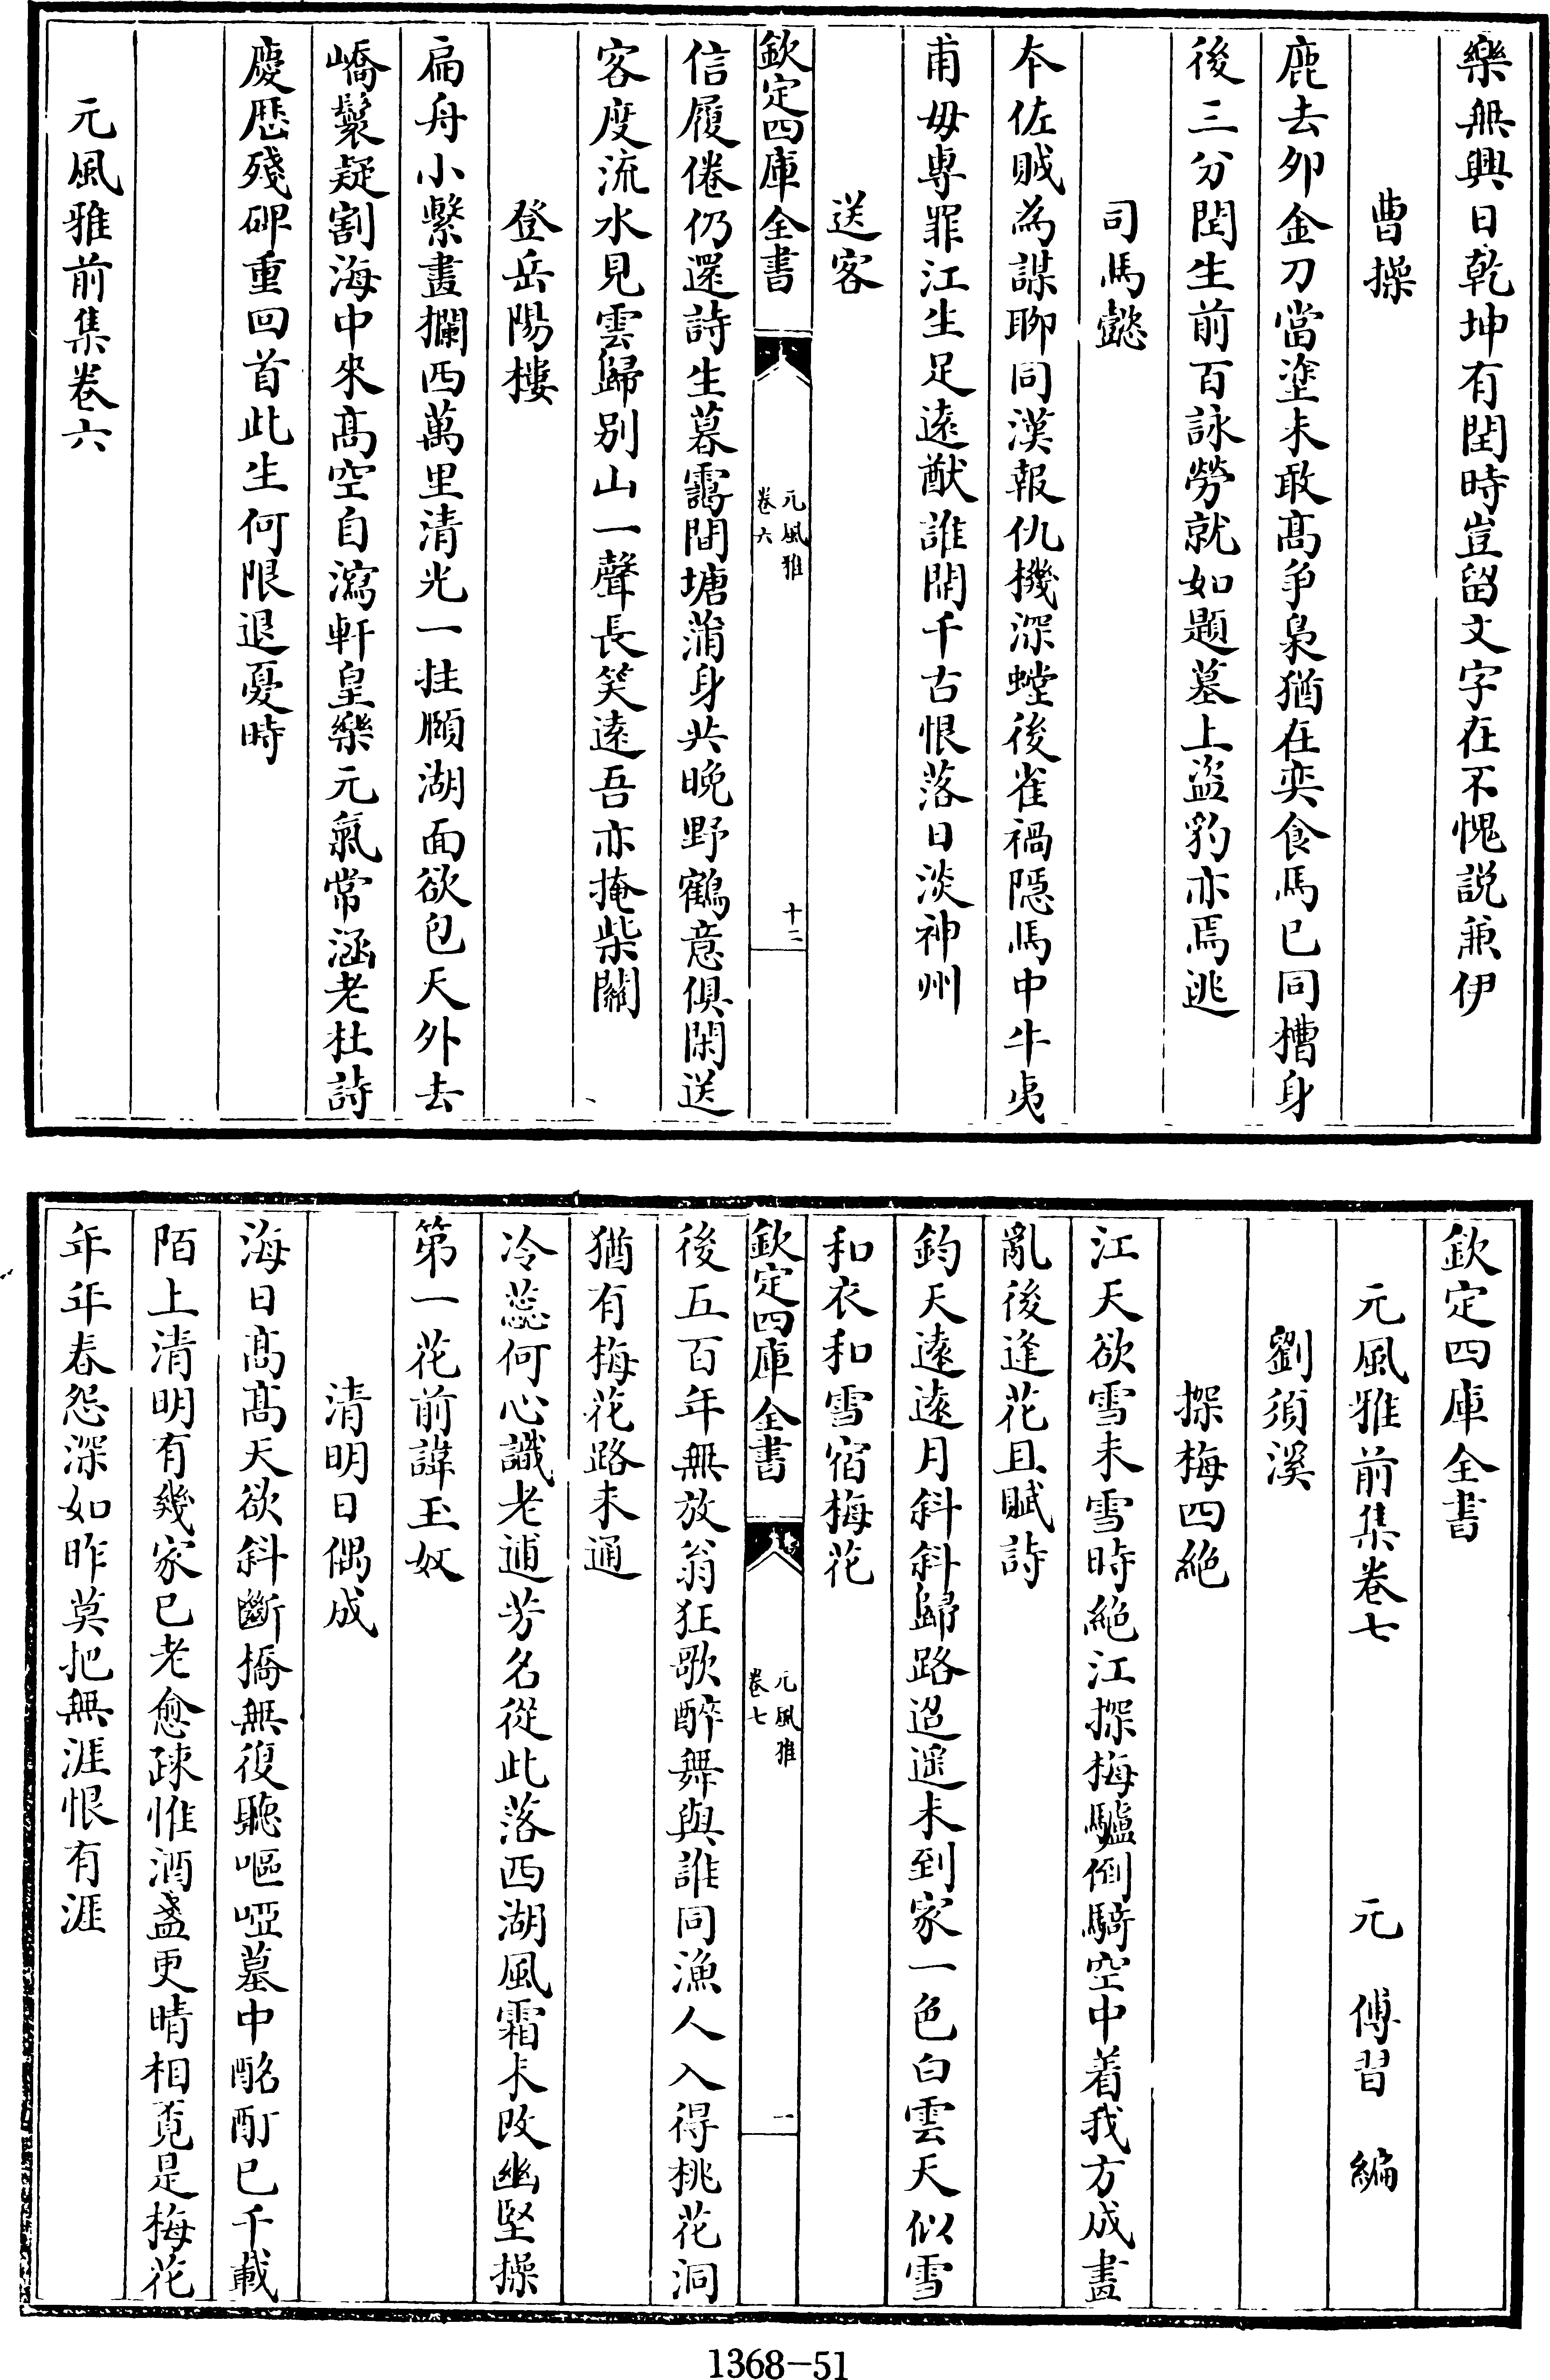 樂無興日乾坤有閏時豈留文字在不愧説兼伊
曹操
鹿去夘金刀當塗未敢髙爭梟猶在奕食馬已同槽身
後三分閏生前百詠勞就如題墓上盜豹亦焉逃
司馬懿
本佐賊為謀聊同漢報仇機深螳後雀禍隠馬中牛夷
甫毋專罪江生足逺猷誰開千古恨落日淡神州
送客
欽定四庫全書
元風雅
卷六
十二
信履倦仍還詩生暮靄間塘蒲身共晩野鶴意俱閑送
客度流水見雲歸别山一聲長笑逺吾亦掩柴關
登岳陽樓
扁舟小繫畫攔西萬里清光一拄頤湖面欲包天外去
嶠鬟疑割海中來髙空自瀉軒皇樂元氣常涵老杜詩
慶厯殘碑重回首此生何限退憂時
元風雅前集卷六
欽定四庫全書
元風雅前集卷七 元 傅習 編
劉須溪
探梅四絶
江天欲雪未雪時絶江探梅驢倒騎空中着我方成畫
亂後逢花且賦詩
鈞天逺逺月斜斜歸路迢遥未到家一色白雲天似雪
和衣和雪宿梅花
欽定四庫全書
元風雅
卷七
一
後五百年無放翁狂歌醉舞與誰同漁人入得桃花洞
猶有梅花路未通
冷蕊何心識老逋芳名從此落西湖風霜未改幽堅操
第一花前諱玉奴
清明日偶成
海日髙髙天欲斜斷橋無復聽嘔啞墓中酩酊已千載
陌上清明有幾家已老愈疎惟酒盞更晴相覓是梅花
年年春怨深如昨莫把無涯恨有涯
1368-51